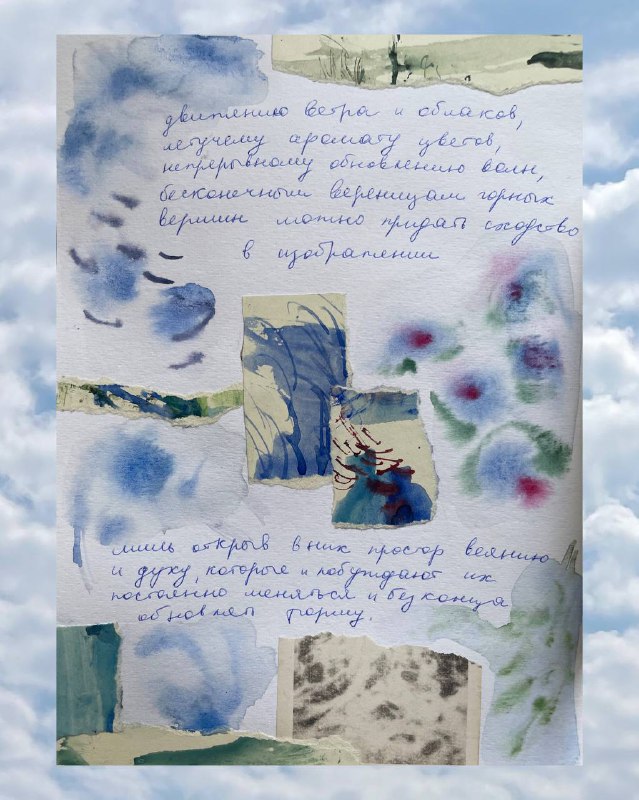 движению ветра и облаков,
летучему аромату цветов,
непрерывному обновлению волн,
бесконечным вереницам горных
вершин можно придать сходство
в изображении
лишь открыв в них простор веянию
и духу, которые и побуждают их
постоянно меняться и без конца
обновлять форму.